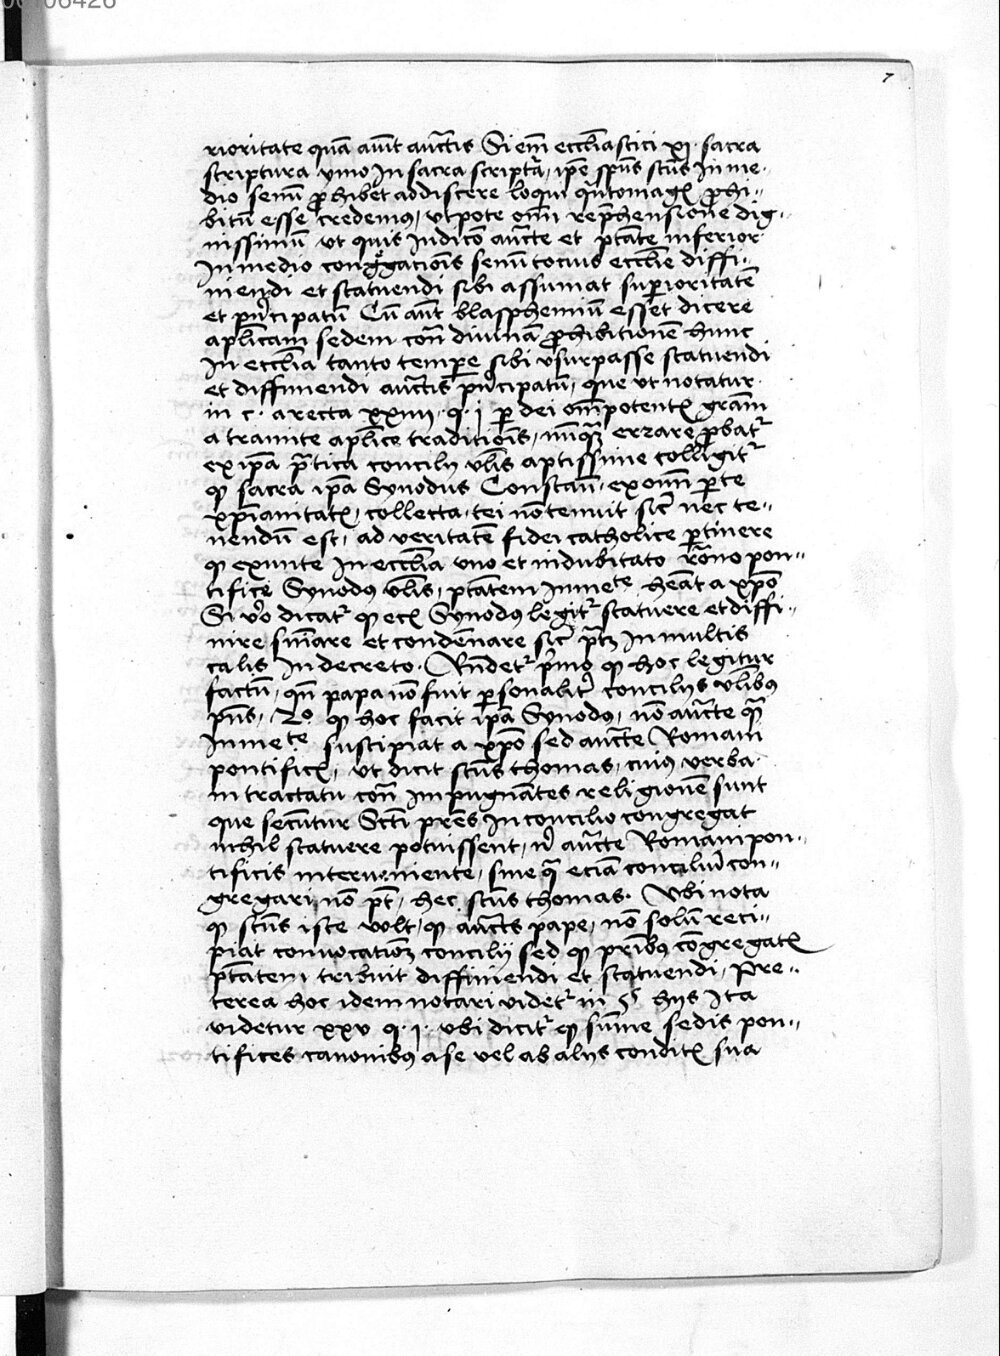 00106426
7
rioritate quā aūt auctīs Si em̄ eccl̄iastici xj. sacra
scriptura ymo In sacra scriptā, ip̄e sp̄us scūs In me-
dio senū ꝓhibet addiscere loqui qn̄tomagꝭ ꝓhi-
bitū esse credemꝰ, vtpote om̄i rep̄hensione dig-
nissimū vt quis Iudico auc̄te et ptāte inferior
In medio congᵉgacioīs senū tocius eccl̄ie diffi-
niendi et statuendi sibi assumat suꝑioritatē
et pⁱncipatū Cū aūt blasphemiū esset dicere
apl̄icam sedem cōn diuinā ꝓhibitionē hunc
In eccl̄ia tanto tempore sibi vsurpasse statuendi
et diffiniendi auctīs pⁱncipatū, que vt notatur
in c. a recta xxiiij. q. j ꝑ dei om̄ipotentꝭ grām
a tramite apl̄ice traditioīs, nūqᵃꝫ errare ꝓbatʳ
ex ip̄a pᵃctica concilij vl̄is aptissime colligitʳ
ꝙ sacra ip̄a Synodus Constan̄. ex om̄i ꝑte
xp̄ianitatꝭ, collecta, tei nō tenuit sic̄ nec te-
nendū est, ad veritatē fidei catholice ꝑtinere
ꝙ exiūte In eccl̄ia vno et indubitato Rōno pon-
tifice Synodus vl̄is, ptātem Inmeᵗᵉ, hēat a xp̄o
Si vᵒo dicatʳ ꝙ ecꝭ Synodꝰ legitʳ statuere et diffi-
nire sn̄iare et condēnare sic̄ pᵗꝫ In multis
talis In decreto. Rn̄detʳ pⁱmo ꝙ hoc legitur
factū, qn̄ papa nō fuit ꝑsonalitʳ concilijs vl̄ibꝰ
pn̄s, 2o ꝙ hoc facit ip̄a Synodꝰ, nō auc̄te qᵃ
Inmeᵗᵉ suscipiat a xp̄o sed auc̄te Romani
pontificꝭ, vt dicit scūs thomas, cuiꝰ verba
in tractatu cōn Impugnātes religionē sunt
que secūtur Scti pr̄es In concilio congregati
nihil statuere potuissent, nⁱ auc̄te Romani pon-
tificis interueniente, sine qᵃ eciā conciliū con-
gregari nō pt̄, hec scūs thomas. Vbi nota
ꝙ scūs iste volt, ꝙ auctīs pape, nō solū reci-
piat conuocationꝫ concilij sed ꝙ pr̄ibꝰ cōgregatꝭ
ptātem tribuit diffiniendi et statuendi, Pre-
terea hoc idem notari videtʳ in § hijs Ita
videtur xxv q. j. vbi dicitʳ ꝙ sūme sedis pon-
tifices canonibꝰ a se vel ab alijs conditꝭ sua